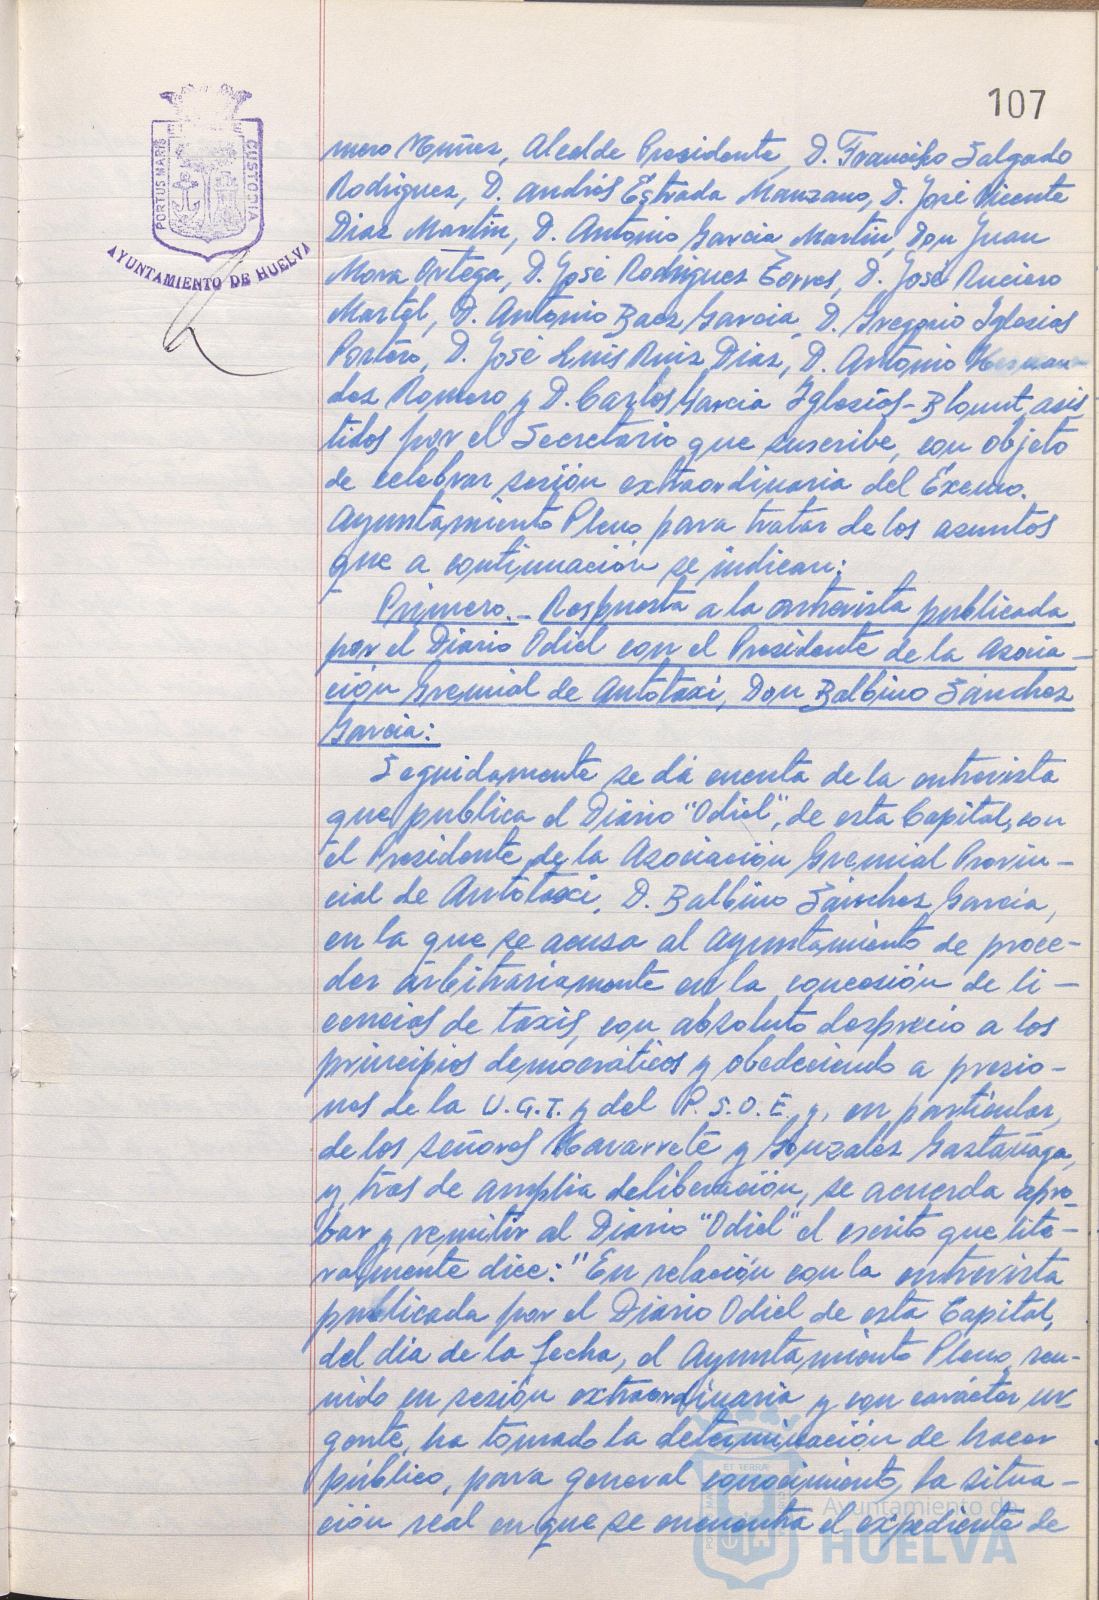 107
PORTUS MARIS
CUSTODIA
AYUNTAMIENTO DE HUELVA
mero Muñoz, Alcalde Presidente, D. Francisco Salgado
Rodriguez, D. Andrés Estrada Manzano, D. José Vicente
Diaz Martín, D. Antonio Garcia Martin, Don Juan
Mora Ortega, D. José Rodriguez Torres, D. José Ruciero
Martel, D. Antonio Baez Garcia, D. Gregorio Iglesias
Portero, D. José Luis Ruiz Diaz, D. Antonio Hernan-
dez Romero y D. Carlos Garcia Iglesias-Blount, asis
tidos por el Secretario que suscribe, con objeto
de celebrar sesión extraordinaria del Excmo.
Ayuntamiento Pleno para tratar de los asuntos
que a continuación se indican:
Primero.- Respuesta a la entrevista publicada
por el Diario Odiel con el Presidente de la Asocia-
ción Gremial de Autotaxi, Don Balbino Sánchez
Garcia:
Seguidamente se dá cuenta de la entrevista
que publica el Diario "Odiel", de esta Capital, con
el Presidente de la Asociación Gremial Provin-
cial de Autotaxi, D. Balbino Sánchez Garcia,
en la que se acusa al Ayuntamiento de proce-
der arbitrariamente en la concesión de li-
cencias de taxis, con absoluto desprecio a los
principios democráticos y obedeciendo a presio-
nes de la U.G.T. y del P.S.O.E. y, en particular,
de los señores Navarrete y González Gaztañaga,
y, tras de amplia deliberación, se acuerda apro-
bar y remitir al Diario "Odiel" el escrito que lite-
ralmente dice: "En relación con la entrevista
publicada por el Diario Odiel de esta Capital,
del dia de la fecha, el Ayuntamiento Pleno, reu-
nido en sesión extraordinaria y con carácter ur-
gente, ha tomado la determinación de hacer
público, para general conocimiento, la situa-
ción real en que se encuentra el expediente de
Ayuntamiento de
HUELVA